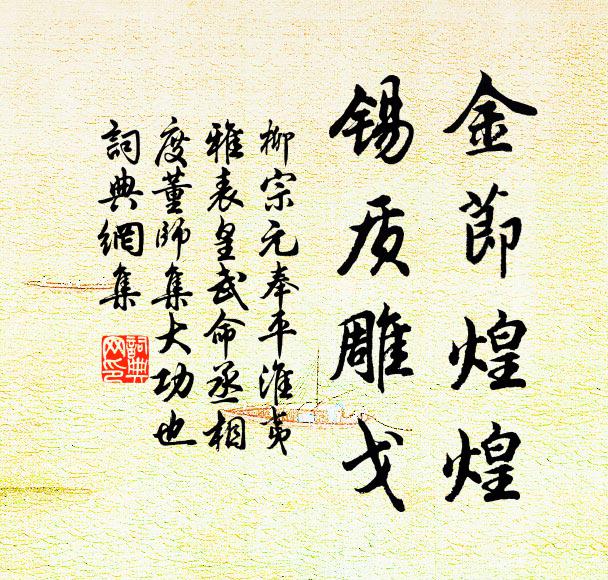 金節煌煌
锡质雕戈
柳宗元奉平淮夷
雅表皇武命丞相
度董師集大功也
詞典網集
詞典網印